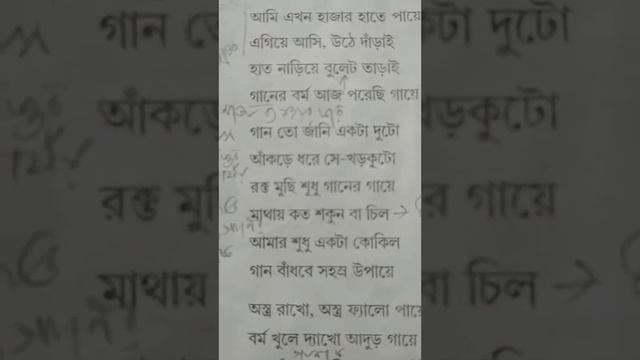 আমি এখন হাজার হাতে পায়ে
এগিয়ে আসি, উঠে দাঁড়াই
হাত নাড়িয়ে বুলেট তাড়াই
গানের বর্ম আজ পরেছি গায়ে
গান তো জানি একটা দুটো
আঁকড়ে ধরে সে-খড়কুটো
রক্ত মুছি শুধু গানের গায়ে
মাথায় কত শকুন বা চিল
আমার শুধু একটা কোকিল
গান বাঁধবে সহস্র উপায়ে
অস্ত্র রাখো, অস্ত্র ফ্যালো পায়ে
বর্ম খুলে দ্যাখো আদুড় গায়ে